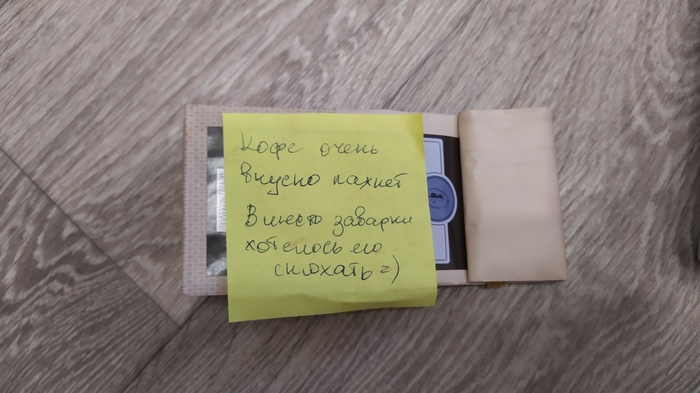 Кофе очень
вкусно пахнет
Вместо заварки
хотелось его
снюхать =)